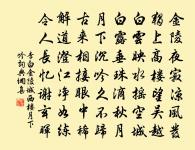 金陵夜寂涼風發
獨上高樓望吳越
白雲映水搖空城
白露垂珠滴秋月
月下沉吟久不歸
古來相接眼中稀
解道澄江淨如練
令人長憶謝玄暉
李白金陵城西樓月下
吟詞典網集